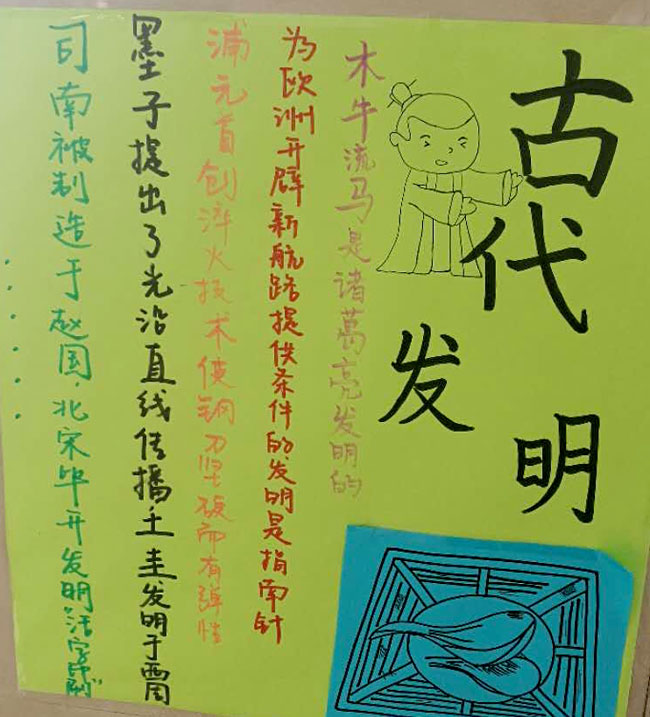 古代发明
木牛流马是诸葛亮发明的
为欧洲开辟新航路提供条件的发明是指南针
浦元首创淬火技术使钢刀坚硬而有弹性
墨子提出了光沿直线传播,土圭发明于西周
司南被制造于赵国,北宋毕开发明活字印刷